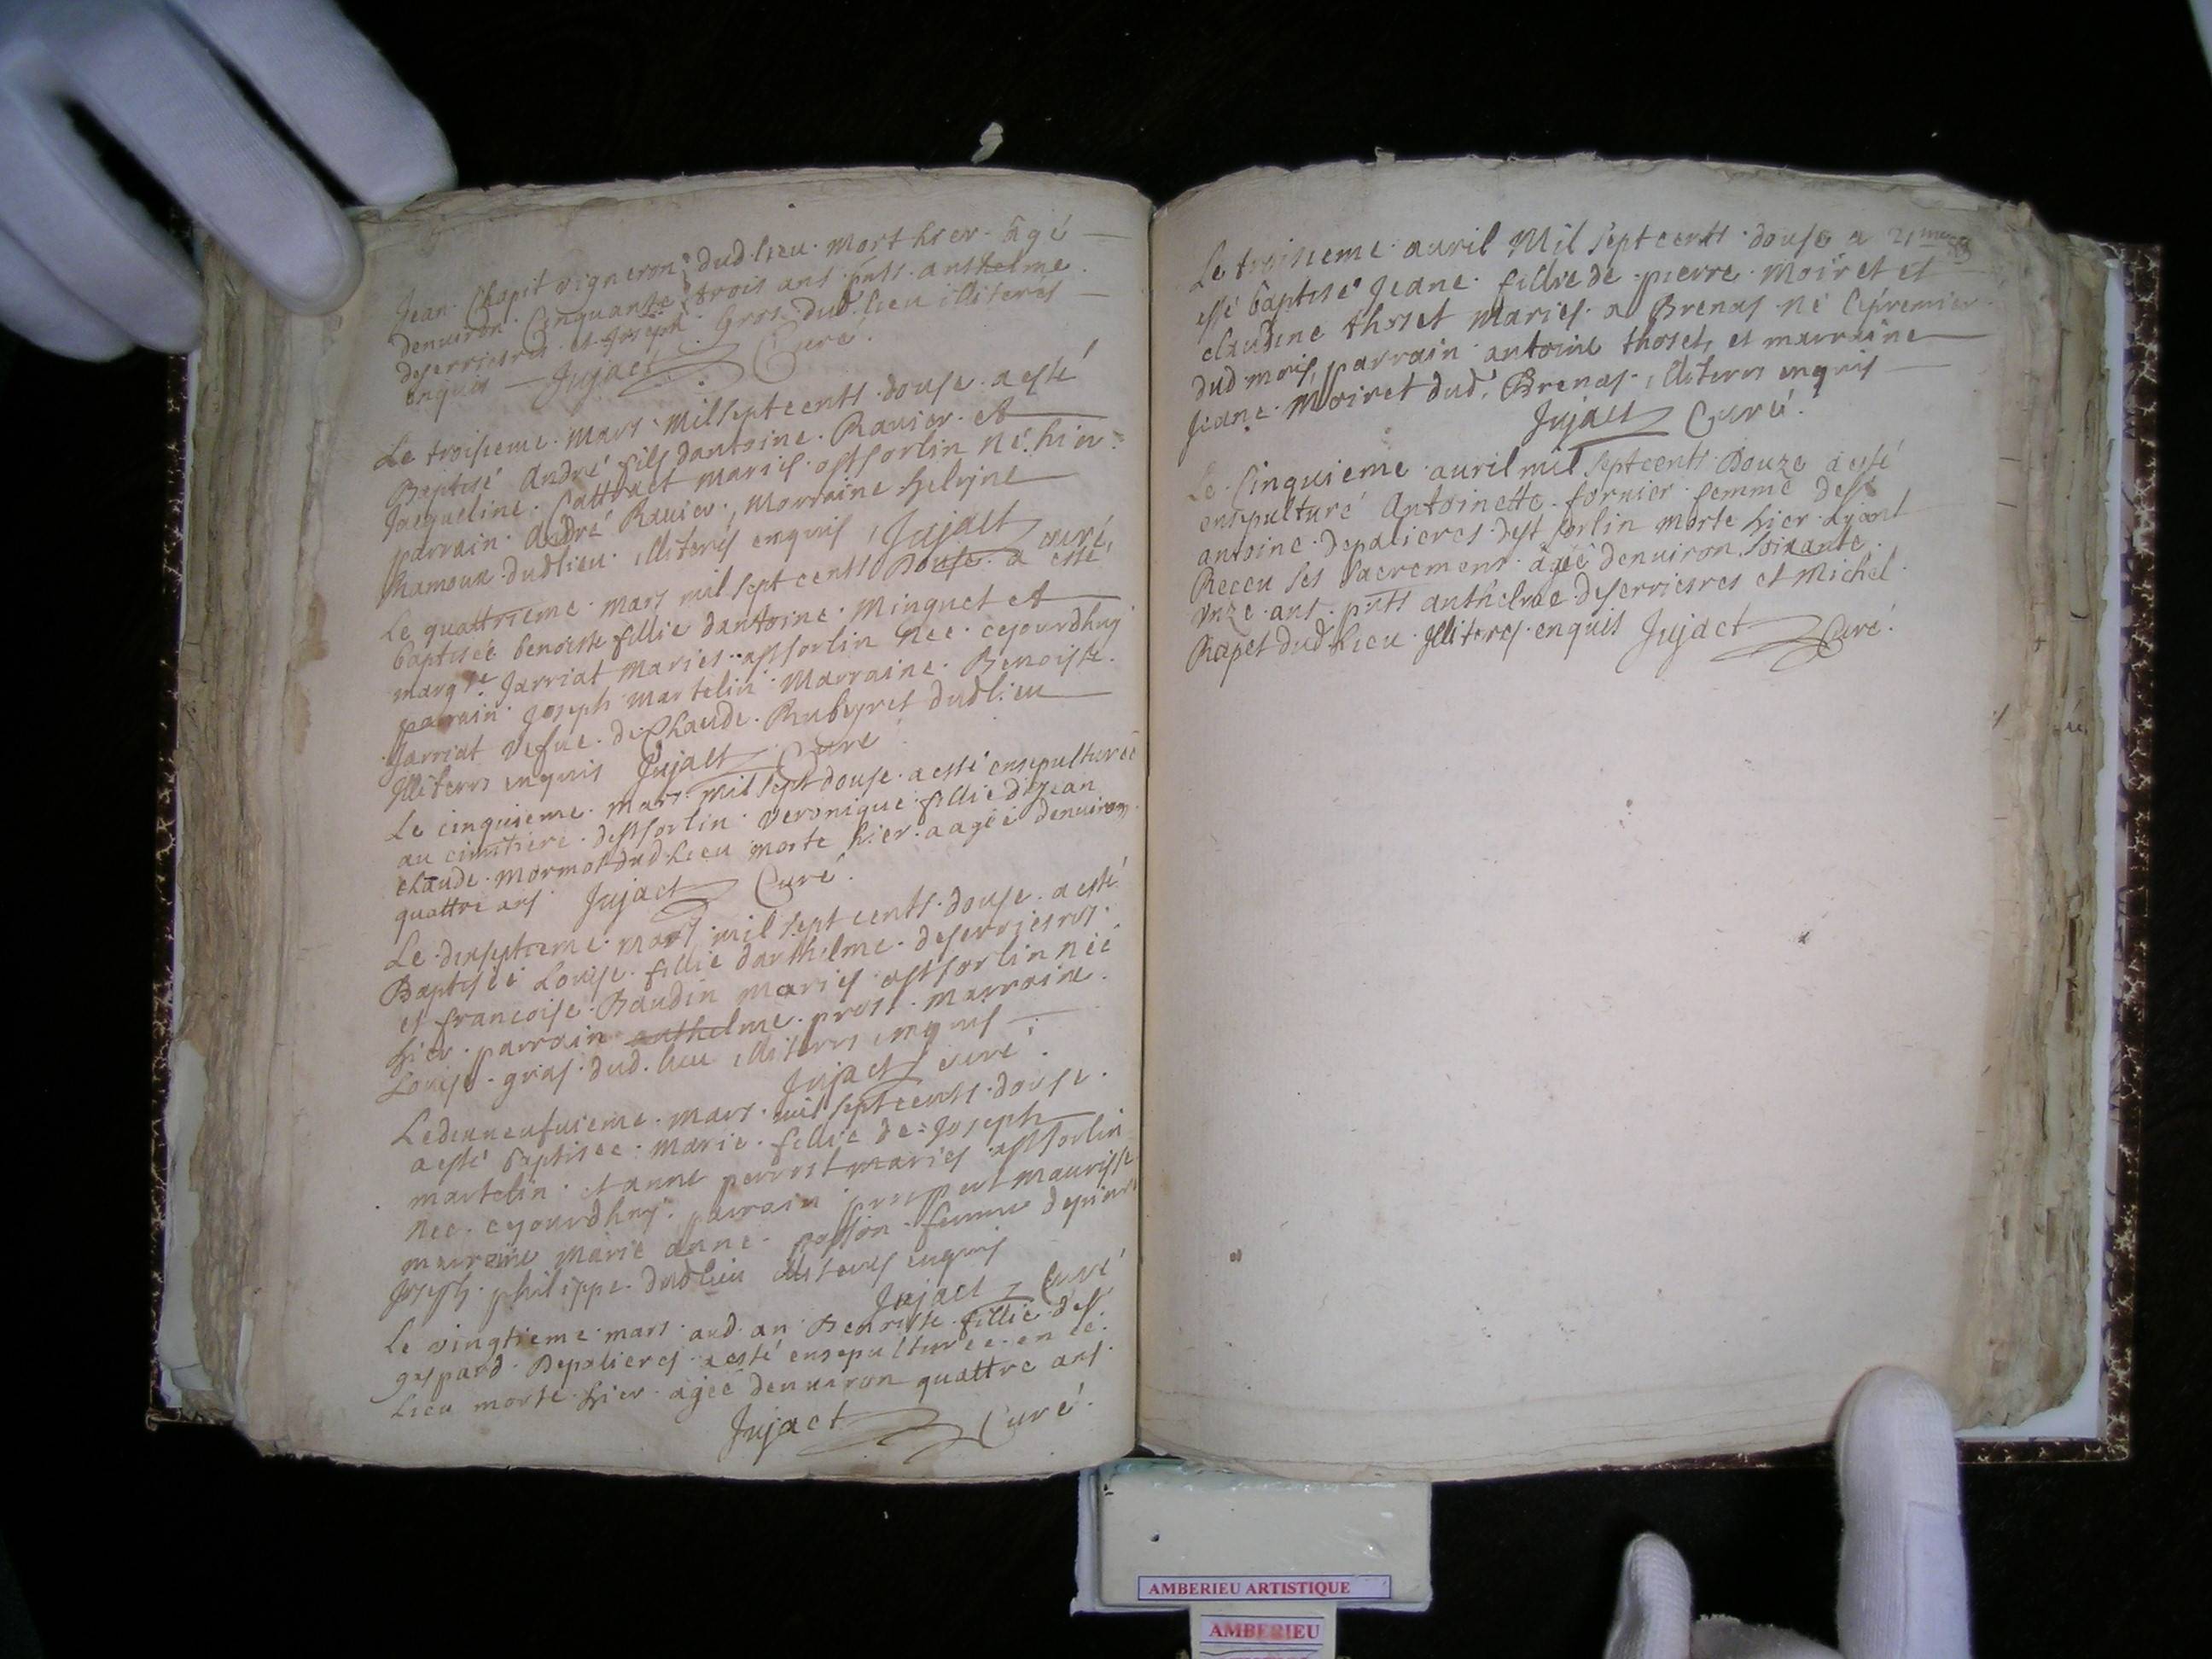 Jean Chapit vigneron dud. lieu mort hier âgé
denviron Cinquante trois ans pnts anthelme
deserriesres et Joseph Gros dud. lieu illiterés
enquis Jujact Curé.
Le troisieme mars mil sept cents douse a esté
Baptisé André fils dantoine Ravier et
Jacqueline mariés a st sorlin né hier
parrain André Ravier, Marraine
Ramoux dud lieu illiterés enquis, Jujact curé,
Le quattrieme mars mil sept cents Douse a esté
baptisée benoiste fillie dantoine Minguet et
margte Jarriat mariés a st sorlin née cejourdhuy
parrain Joseph martelin Marraine Benoiste
Jarriat vefue de Claude Rubeyret dud lieu
Illiterés enquis Jujact Curé
Le cinquieme mars mil sept douse a esté ensepulturée
au cimitiere de st sorlin veronique fillie de Jean
claude mormot dud lieu morte hier aagée denviron
quattre ans Jujact Curé.
Le dixseptieme mars mil sept cents douse a esté
Baptisée Louise fillie danthelme deserriesres
et francoise Baudin mariés a st sorlin née
hier parrain anthelme prost marraine
Louise gras dud. lieu illiterés enquis
Jujact curé.
Le dixneufuieme mars mil sept cents douse
a esté baptisée marie fillie de Joseph
martelin et anne perrost mariés a st sorlin
née cejourdhuy parrain maurisse
marraine marie anne femme de pierre
Joseph philippe dud lieu illiterés enquis
Jujact Curé
Le vingtieme mars aud. an Benoiste fillie de sr
gaspard Depalieres a esté ensepulturée en ce
Lieu morte hier agée denuiron quattre ans
Jujact Curé.
Le troisieme auril Mil sept cents douse a
esté baptisé Jeane fillie de pierre Moiret et
claudine thoset mariés a Brenas né le premier
dud mois, parrain antoine thoset, et marraine
Jeane Moiret dud. Brenas, illiterés enquis
Jujact Curé.
Le Cinquieme auril mil sept cents Douze a esté
ensepulturé Antoinette fornier femme de sr
antoine depalieres de st sorlin morte hier ayant
Receu les sacremens âgée denuiron soixante
unze ans pnts anthelme deserriesres et Michel
Rapet dud lieu Illiterés enquis Jujact Curé.
AMBERIEU ARTISTIQUE
AMBERIEU